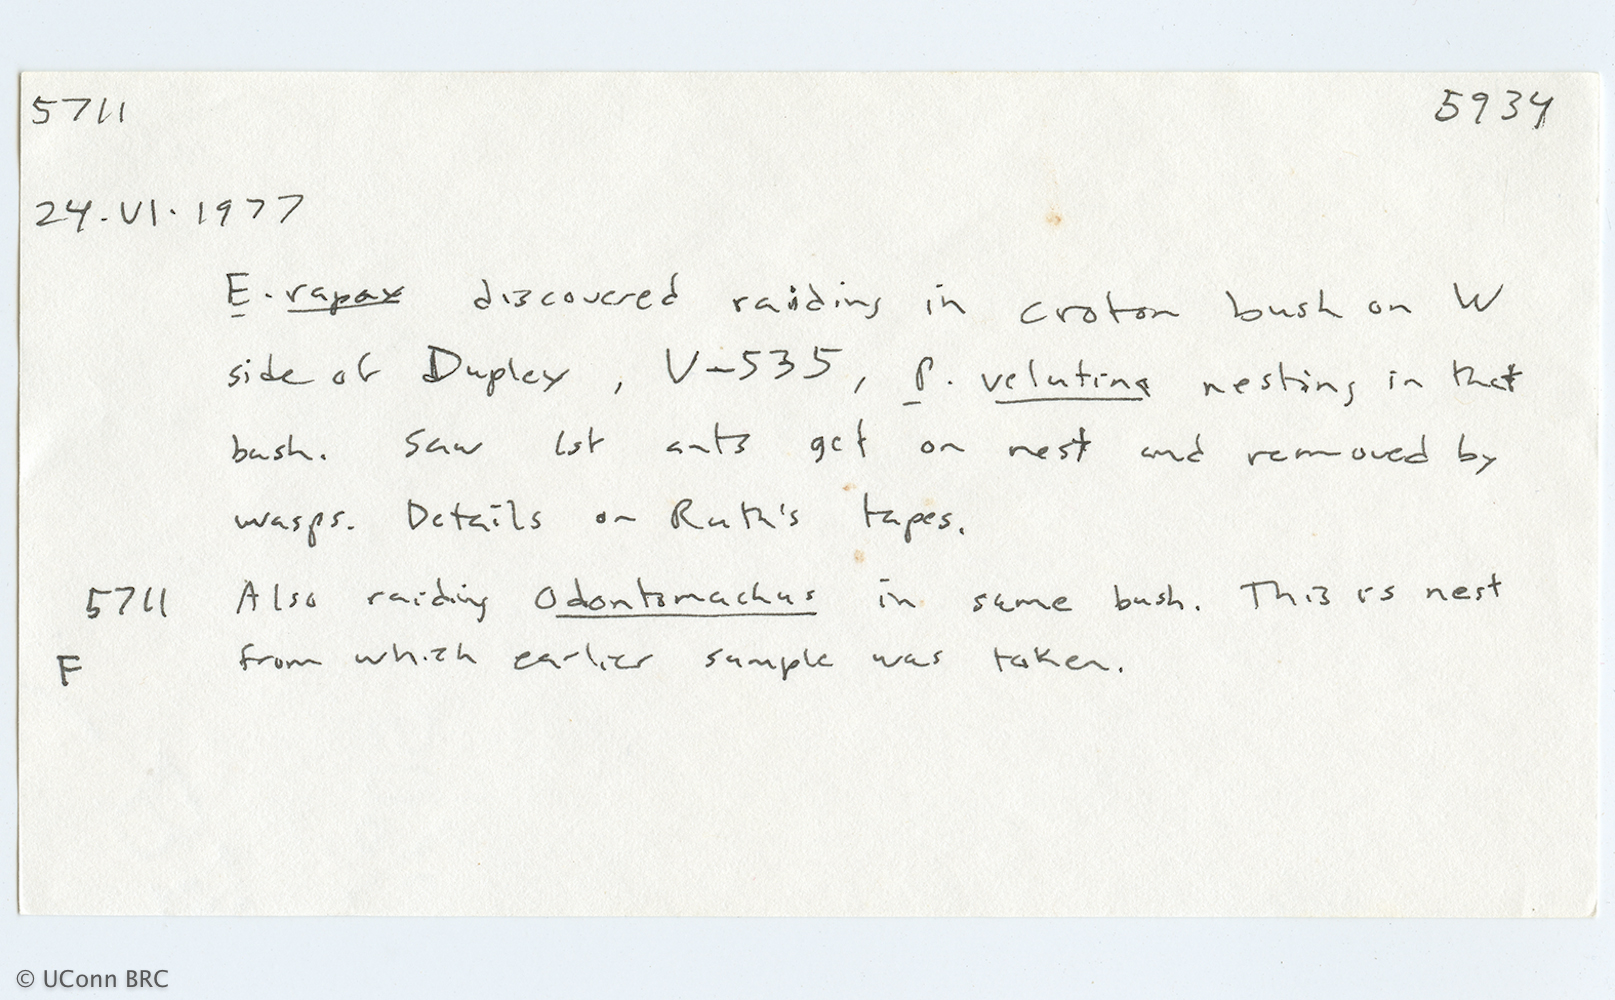 5711 5934
24.VI.1977
E. rapax discovered raiding in croton bush on W
side of Duplex, V-535, P. velutina nesting in that
bush. Saw 1st ants get on nest and removed by
wasps. Details on Ruth's tapes.
5711 Also raiding Odontomachus in same bush. This is nest
F from which earlier sample was taken.
© UConn BRC